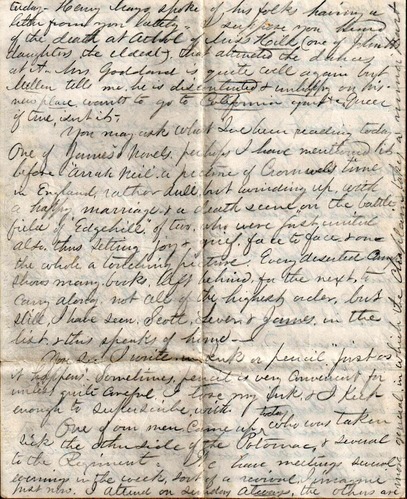 today - Henry Mays spoke of his folks having a
letter from you lately I suppose you heard
of the death at Athol of Miss Kield (one of John H's
daughters, the eldest) that attended the dances
at it. Mrs. Goddard is quite well again but
Mellen tells me, he is discontented & unhappy on his
new place, wants to go to California again - Queer
of two, isn't it -
You may ask what I've been reading today
One of James's Novels, perhaps I have mentioned it
before Arrah Neil, a picture of Cromwell's time
in England, rather dull, but winding up, with
a happy marriage, & a death scene on the battle
field of Edgehill, of two, who were just united
also, thus setting joy & grief, face to face & on
the whole a touching picture. Every deserted Camp
shows many books, left behind, for the next, to
carry along, not all of the highest order, but
still, I have seen, Scott, Lever & James, in the
list, & this speaks of home -
You see I write in ink or pencil "just as
it happens". Sometimes, pencil is very convenient for
unless quite careful, I lose my ink & I keep
enough to superscribe, with
One of our men came up today, who was taken
sick the other side of the Potomac, & several
to the Regiment. We have meetings several
evenings in the week, sort of a revival, I imagine
just now. I attend on Sunday always the others are